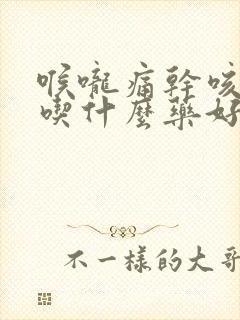 喉嚨痛幹咳
喫什麼藥好
不一樣的大哥